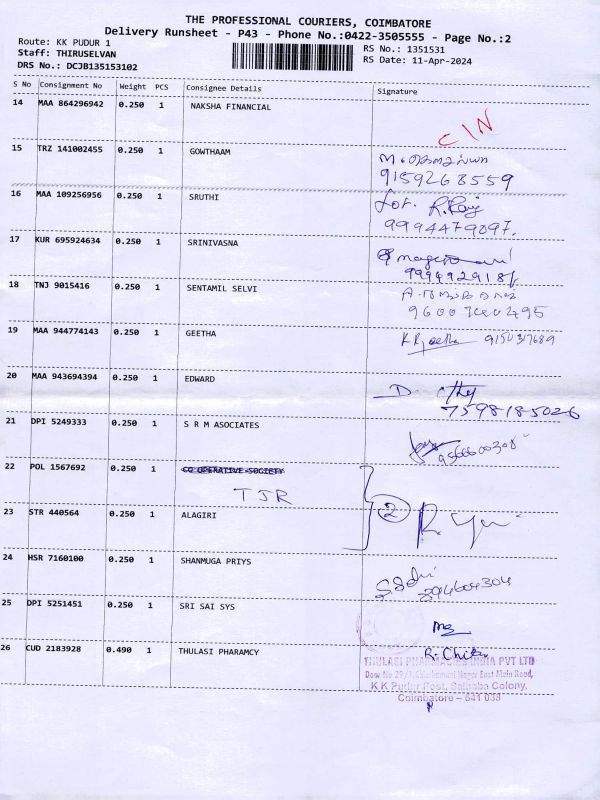 THE PROFESSIONAL COURIERS, COIMBATORE
Delivery Runsheet - P43 - Phone No.:0422-3505555 - Page No.:2
Route: KK PUDUR 1
RS No.: 1351531
Staff: THIRUSELVAN
RS Date: 11-Apr-2024
DRS No.: DCJB135153102
S No Consignment No Weight PCS Consignee Details Signature
14 MAA 864296942 0.250 1 NAKSHA FINANCIAL
CIN
15 TRZ 141002455 0.250 1 GOWTHAAM
9159268559
16 MAA 109256956 0.250 1 SRUTHI
9994479097.
17 KUR 695924634 0.250 1 SRINIVASNA
18 TNJ 9015416 0.250 1 SENTAMIL SELVI
19 MAA 944774143 0.250 1 GEETHA
20 MAA 943694394 0.250 1 EDWARD
7598185026
21 DPI 5249333 0.250 1 S R M ASOCIATES
22 POL 1567692 0.250 1 CO OPERATIVE SOCIETY
TJR
23 STR 440564 0.250 1 ALAGIRI
2
24 HSR 7160100 0.250 1 SHANMUGA PRIYS
25 DPI 5251451 0.250 1 SRI SAI SYS
26 CUD 2183928 0.490 1 THULASI PHARAMCY
THULASI PHARMACIES INDIA PVT LTD
East Main Road,
K K Pudur Post, Saibaba Colony,
Coimbatore - 641 038